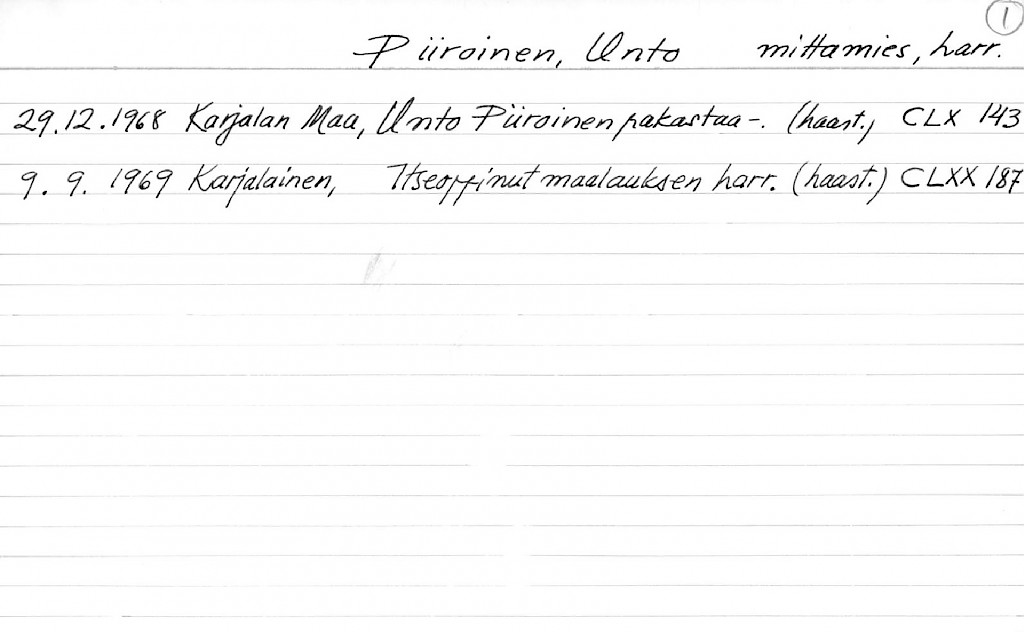 1
Piiroinen, Unto mittamies, harr.
29.12.1968 Karjalan Maa, Unto Piiroinen pakastaa-. (haast.) CLX 143
9. 9. 1969 Karjalainen, Itseoppinut maalauksen harr. (haast.) CLXX 187